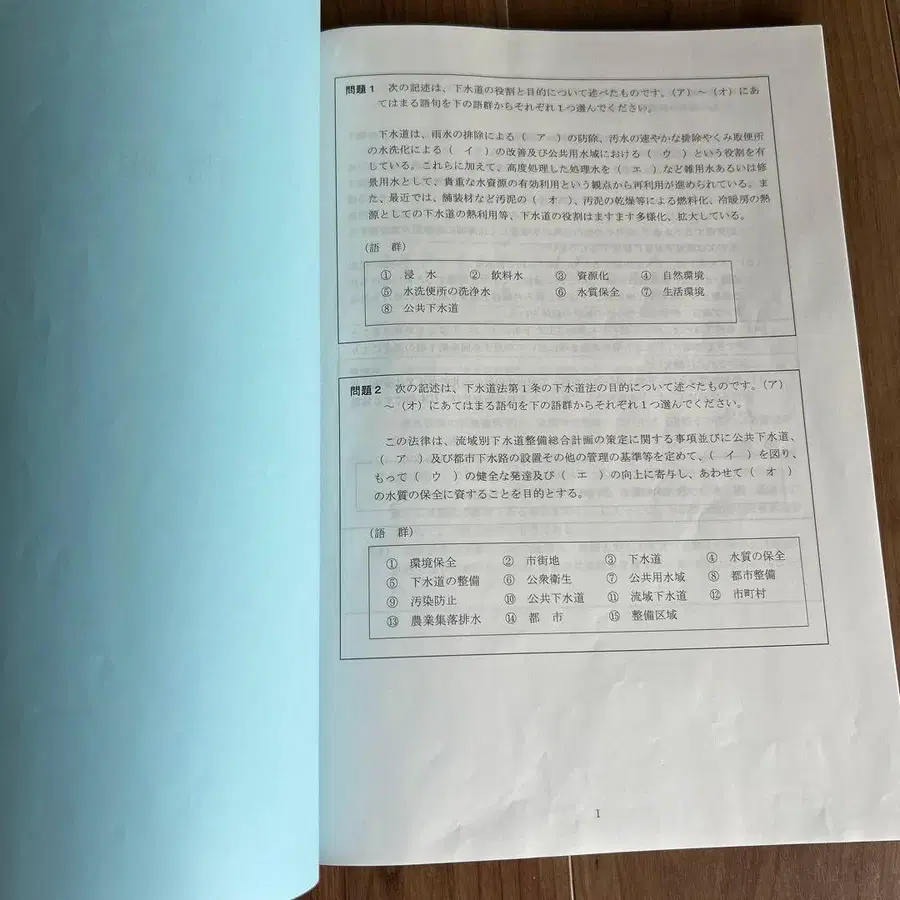 問題1 次の記述は、下水道の役割と目的について述べたものです。（ア）～（オ）にあ
てはまる語句を下の語群からそれぞれ1つ選んでください。
下水道は、雨水の排除による（ ア ）の防除、汚水の速やかな排除やくみ取便所
の水洗化による（ イ ）の改善及び公共用水域における（ ウ ）という役割を有
している。これらに加えて、高度処理した処理水を（ エ ）など雑用水あるいは修
景用水として、貴重な水資源の有効利用という観点から再利用が進められている。ま
た、最近では、舗装材など汚泥の（ オ ）、汚泥の乾燥等による燃料化、冷暖房の熱
源としての下水道の熱利用等、下水道の役割はますます多様化、拡大している。
（語 群）
① 浸 水 ② 飲料水 ③ 資源化 ④ 自然環境
⑤ 水洗便所の洗浄水 ⑥ 水質保全 ⑦ 生活環境
⑧ 公共下水道
問題2 次の記述は、下水道法第1条の下水道法の目的について述べたものです。（ア）
～（オ）にあてはまる語句を下の語群からそれぞれ1つ選んでください。
この法律は、流域別下水道整備総合計画の策定に関する事項並びに公共下水道、
（ ア ）及び都市下水路の設置その他の管理の基準等を定めて、（ イ ）を図り、
もって（ ウ ）の健全な発達及び（ エ ）の向上に寄与し、あわせて（ オ ）
の水質の保全に資することを目的とする。
（語 群）
① 環境保全 ② 市街地 ③ 下水道 ④ 水質の保全
⑤ 下水道の整備 ⑥ 公衆衛生 ⑦ 公共用水域 ⑧ 都市整備
⑨ 汚染防止 ⑩ 公共下水道 ⑪ 流域下水道 ⑫ 市町村
⑬ 農業集落排水 ⑭ 都 市 ⑮ 整備区域
1